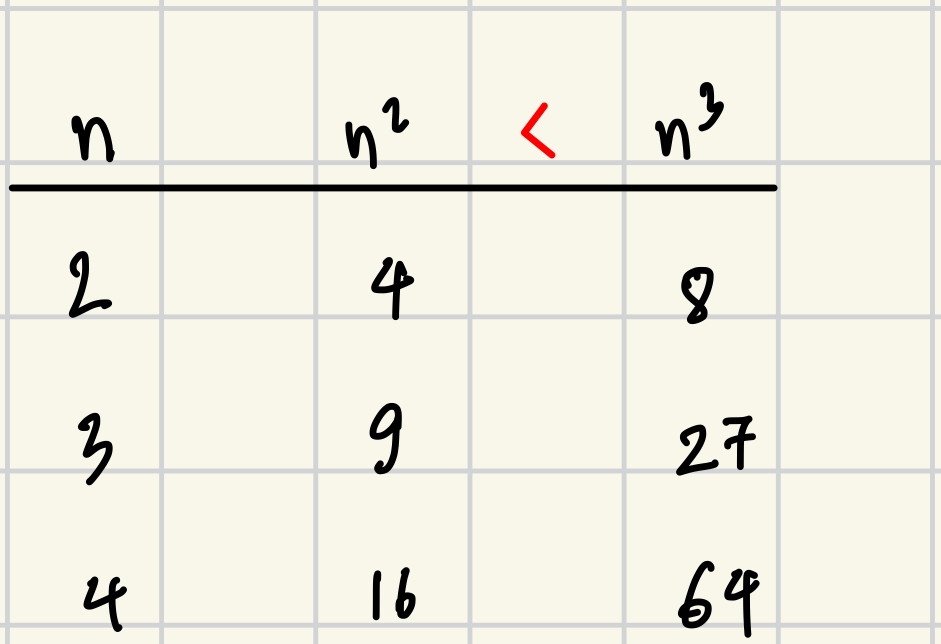 n n² < n³
2 4 8
3 9 27
4 16 64